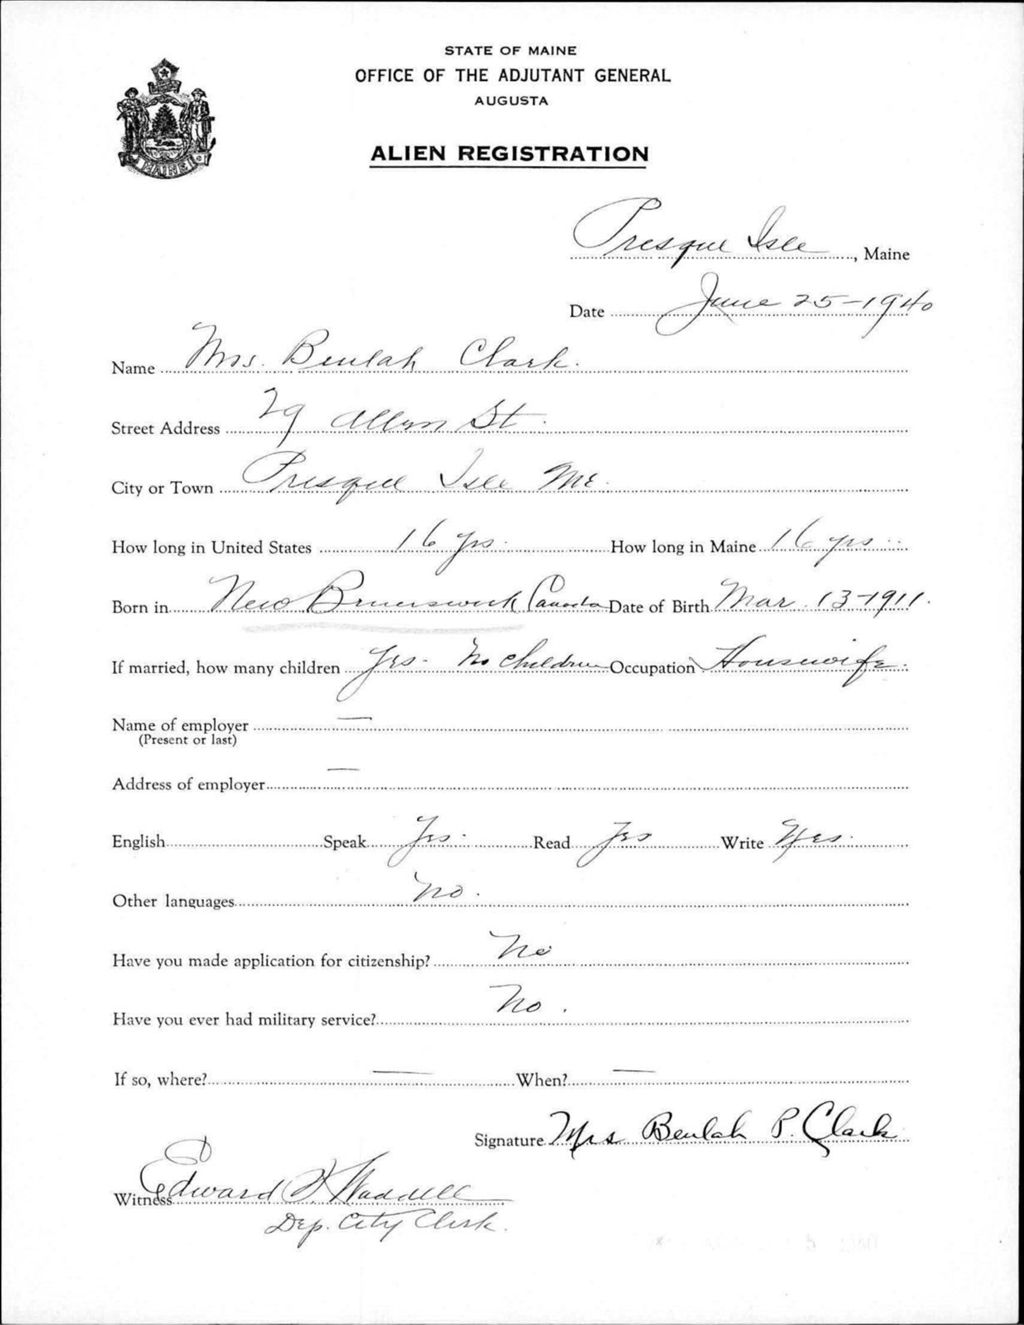 STATE OF MAINE
OFFICE OF THE ADJUTANT GENERAL
AUGUSTA
ALIEN REGISTRATION
MAINE
Presque Isle, Maine
Date June 25-1940
Name Mrs. Beulah Clark.
Street Address 29 Allen St.
City or Town Presque Isle Me.
How long in United States 16 yrs. How long in Maine 16 yrs.
Born in New Brunswick Canada Date of Birth Mar. 13-1911.
If married, how many children Yes- No Children Occupation Housewife.
Name of employer —
(Present or last)
Address of employer —
English Speak Yes. Read Yes Write Yes.
Other languages No.
Have you made application for citizenship? No
Have you ever had military service? No.
If so, where? — When? —
Signature Mrs Beulah P. Clark
Witness Edward Waddell
Dep. City Clerk.